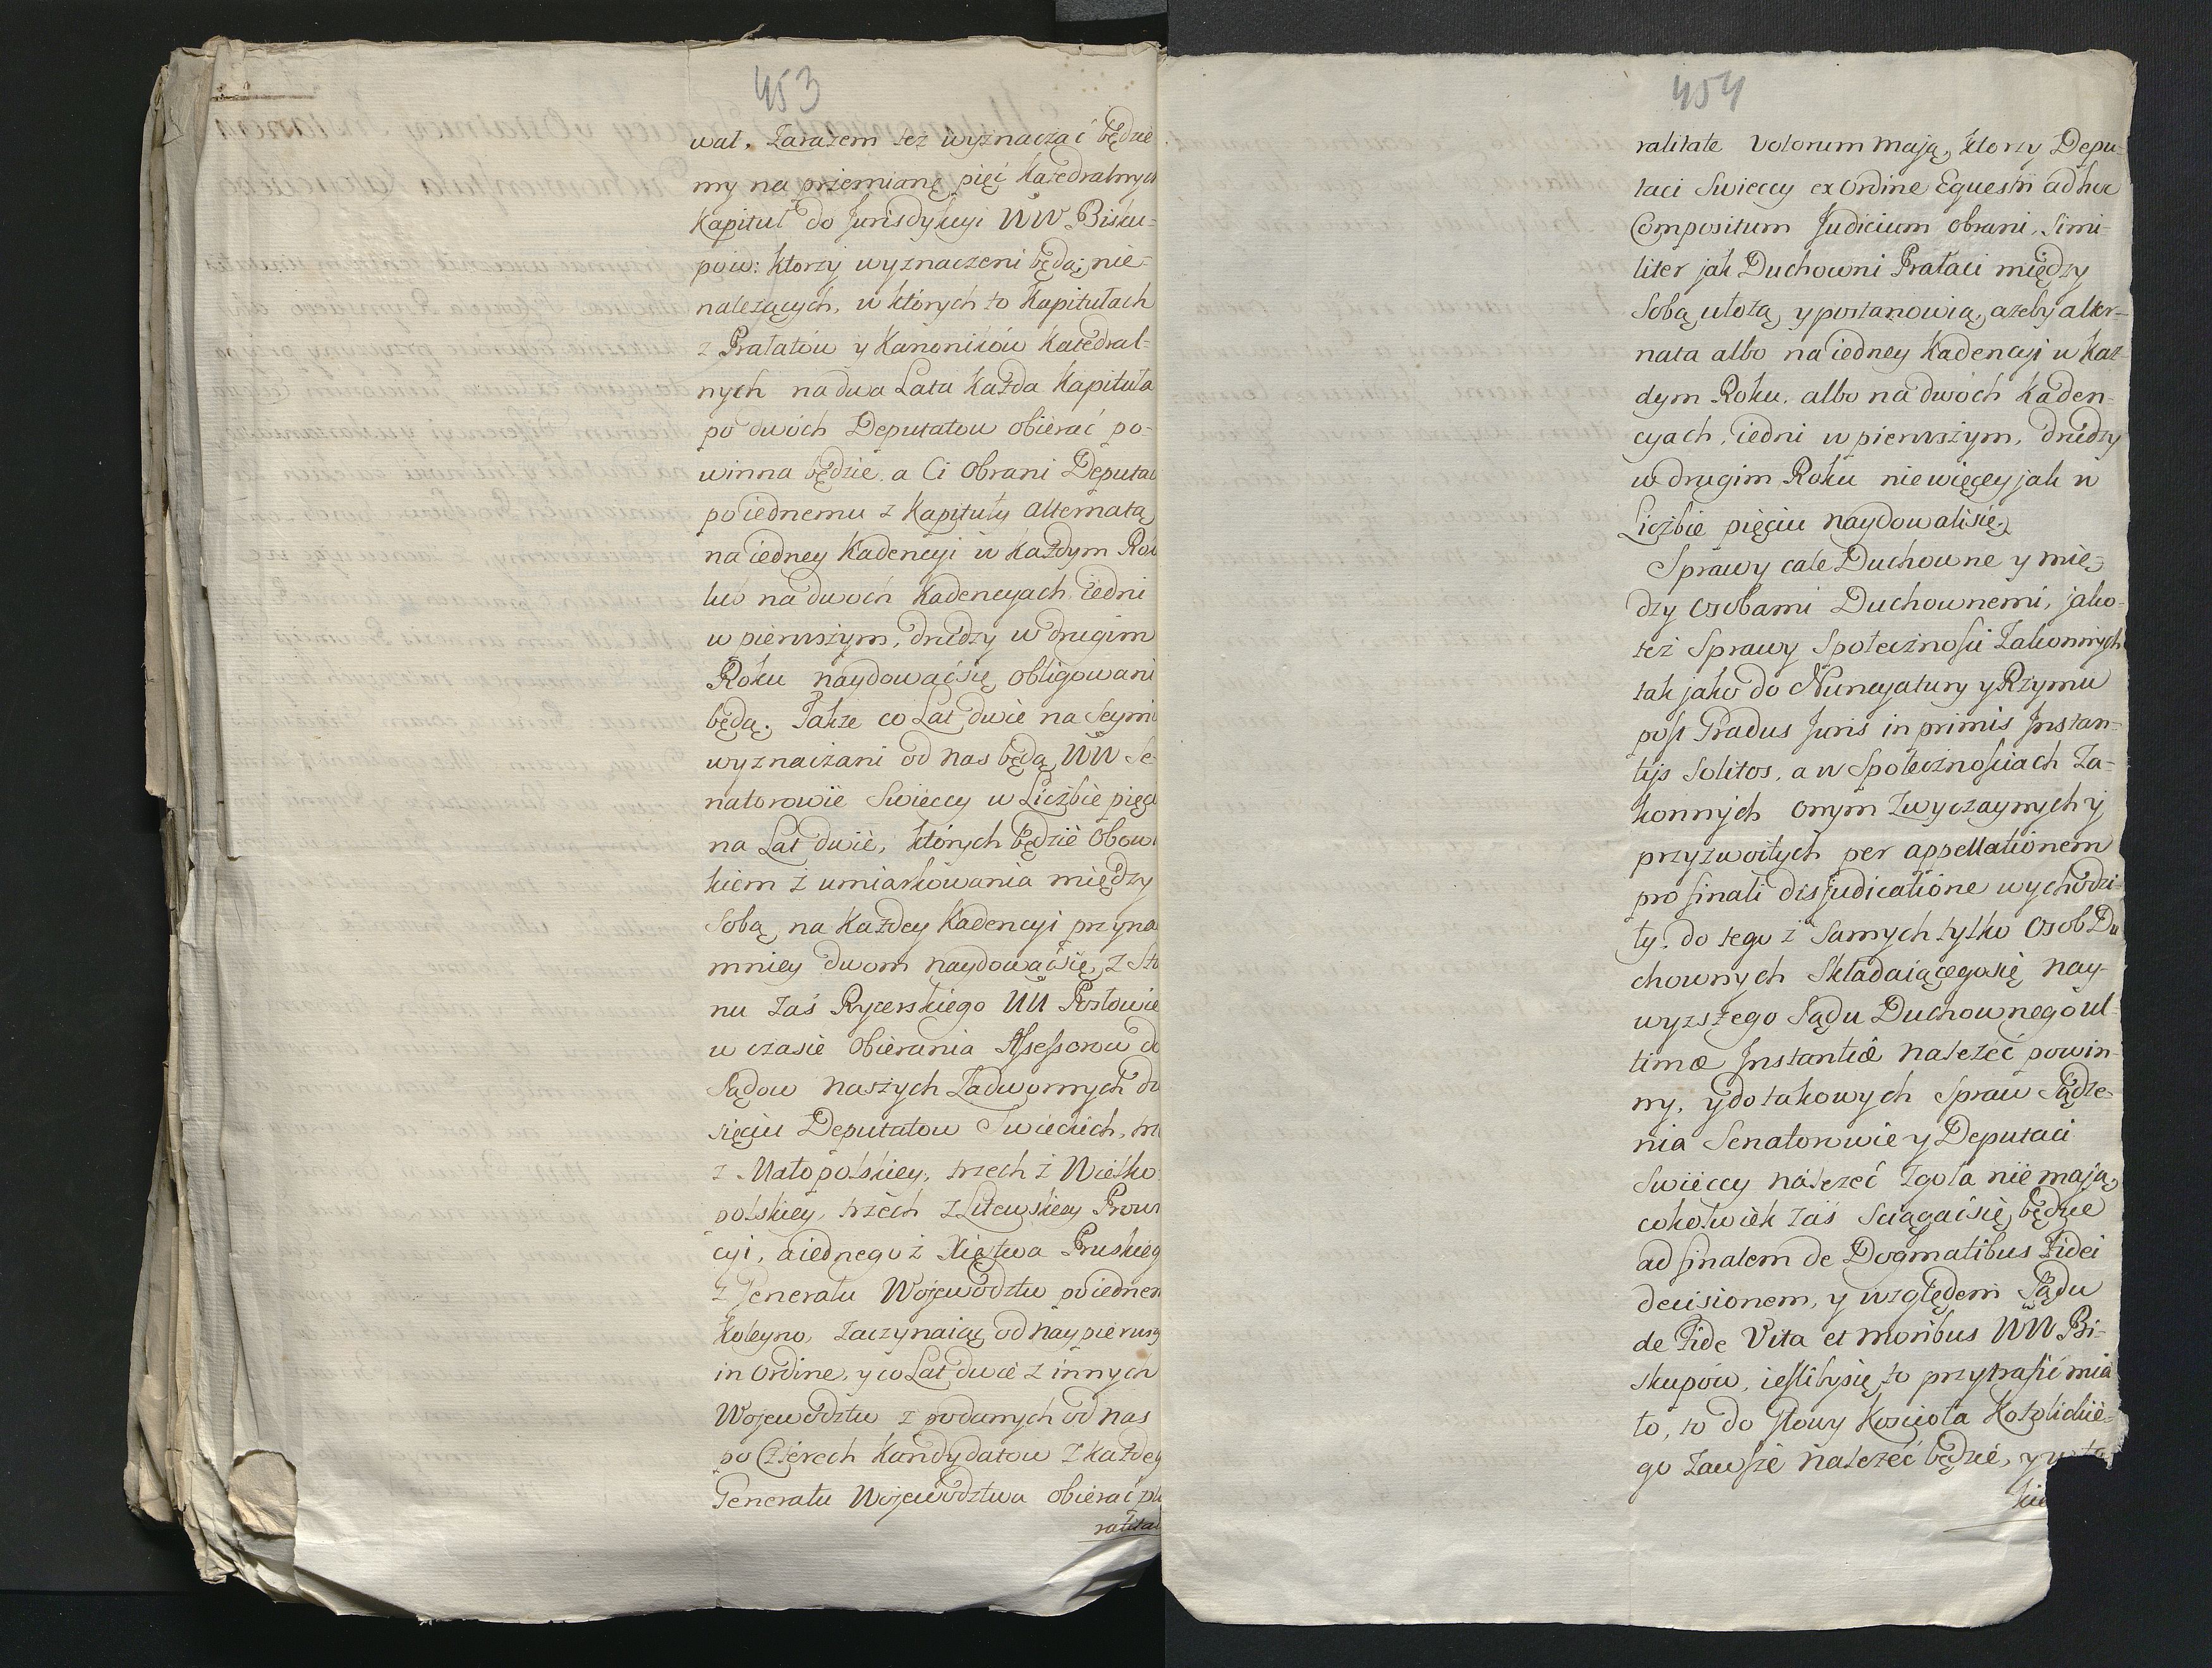 453
wał. Zarazem też wyznaczać będzie
my na przemianę pięć Katedralnych
Kapituł do Jurisdykcyi WW Bisku=
pów: ktorzy wyznaczeni będą, nie=
należących, w których to Kapitułach
z Prałatów y Kanoników Katedral=
nych na dwa Lata każda Kapituła
po dwóch Deputatow obierać po=
winna będzie. a Ci obrani Deputa
po iednemu z Kapituły alternatą
na iedney Kadencyi w każdym Ro
lub na dwóch Kadencyach. iedni
w pierwszym, drudzy w drugim
Roku naydować się obligowani
będą. Także co Lat dwie na Seym
wyznaczani od nas będą WW Se
natorowie Swieccy w Liczbie pięc
na Lat dwie, których będzie obow
kiem z umiarkowania między
Sobą na każdey Kadencyi przyna
mniey dwom naydować się, z Sta
nu zaś Rycerskiego UU Posłowie
w czasie obierania Assessorow do
Sądow naszych Zadwornych dz
sięciu Deputatow Swieckich, trz
z Małopolskiey, trzech z Wielko
polskiey, trzech z Litewskiey Prow
cyi, a iednego z Xięstwa Pruskieg
z Generału Wojewodztw po iednem
koleyno, zaczynaiąc od naypierwsz
in ordine, y co Lat dwie z innych
Wojewodztw z podanych od nas
po Czterech Kandydatow z każdeg
Generału Wojewodztwa obierać plu
ralitat
454
ralitate Votorum mają, ktorzy Depu=
taci Swieccy ex Ordine Equestri ad hoc
Compositum Judicium obrani, Simi=
liter jak Duchowni Prałaci między
Sobą ułożą, y postanowią, ażeby alter=
nata albo na iedney Kadencyi w każ=
dym Roku. albo na dwóch Kaden=
cyach, iedni w pierwszym, drudzy
w drugim Roku nie więcey jak w
Liczbie pięciu naydowali się.
Sprawy cale Duchowne y mię=
dzy osobami Duchownemi, jako=
też Sprawy Społeczności Zakonnych
tak jako do Nuncyatury y Rzymu
post Gradus Juris in primis Instan=
tijs Solitos, a w Społecznościach Za=
konnych onym zwyczaynych y
przyzwoitych per appellationem
pro finali disjudicatione wychodzi=
ły. do tego z Samych tylko Osob Du
chownych Składaiącego się nay=
wyższego Sądu Duchownego ul=
timæ Instantiæ należeć powin=
ny, y do takowych Spraw Sądze=
nia Senatorowie y Deputaci
Swieccy należeć zgoła nie mają,
cokolwiek zaś Sciągać się będzie
ad finalem de Dogmatibus Fidei
decisionem, y względem Sądu
de Fide Vita et moribus WW Bi=
skupów, iesliby się to przytrafić mia
ło, to do Głowy Kościoła Katolickie=
go zawsze należeć będzie, y w ta